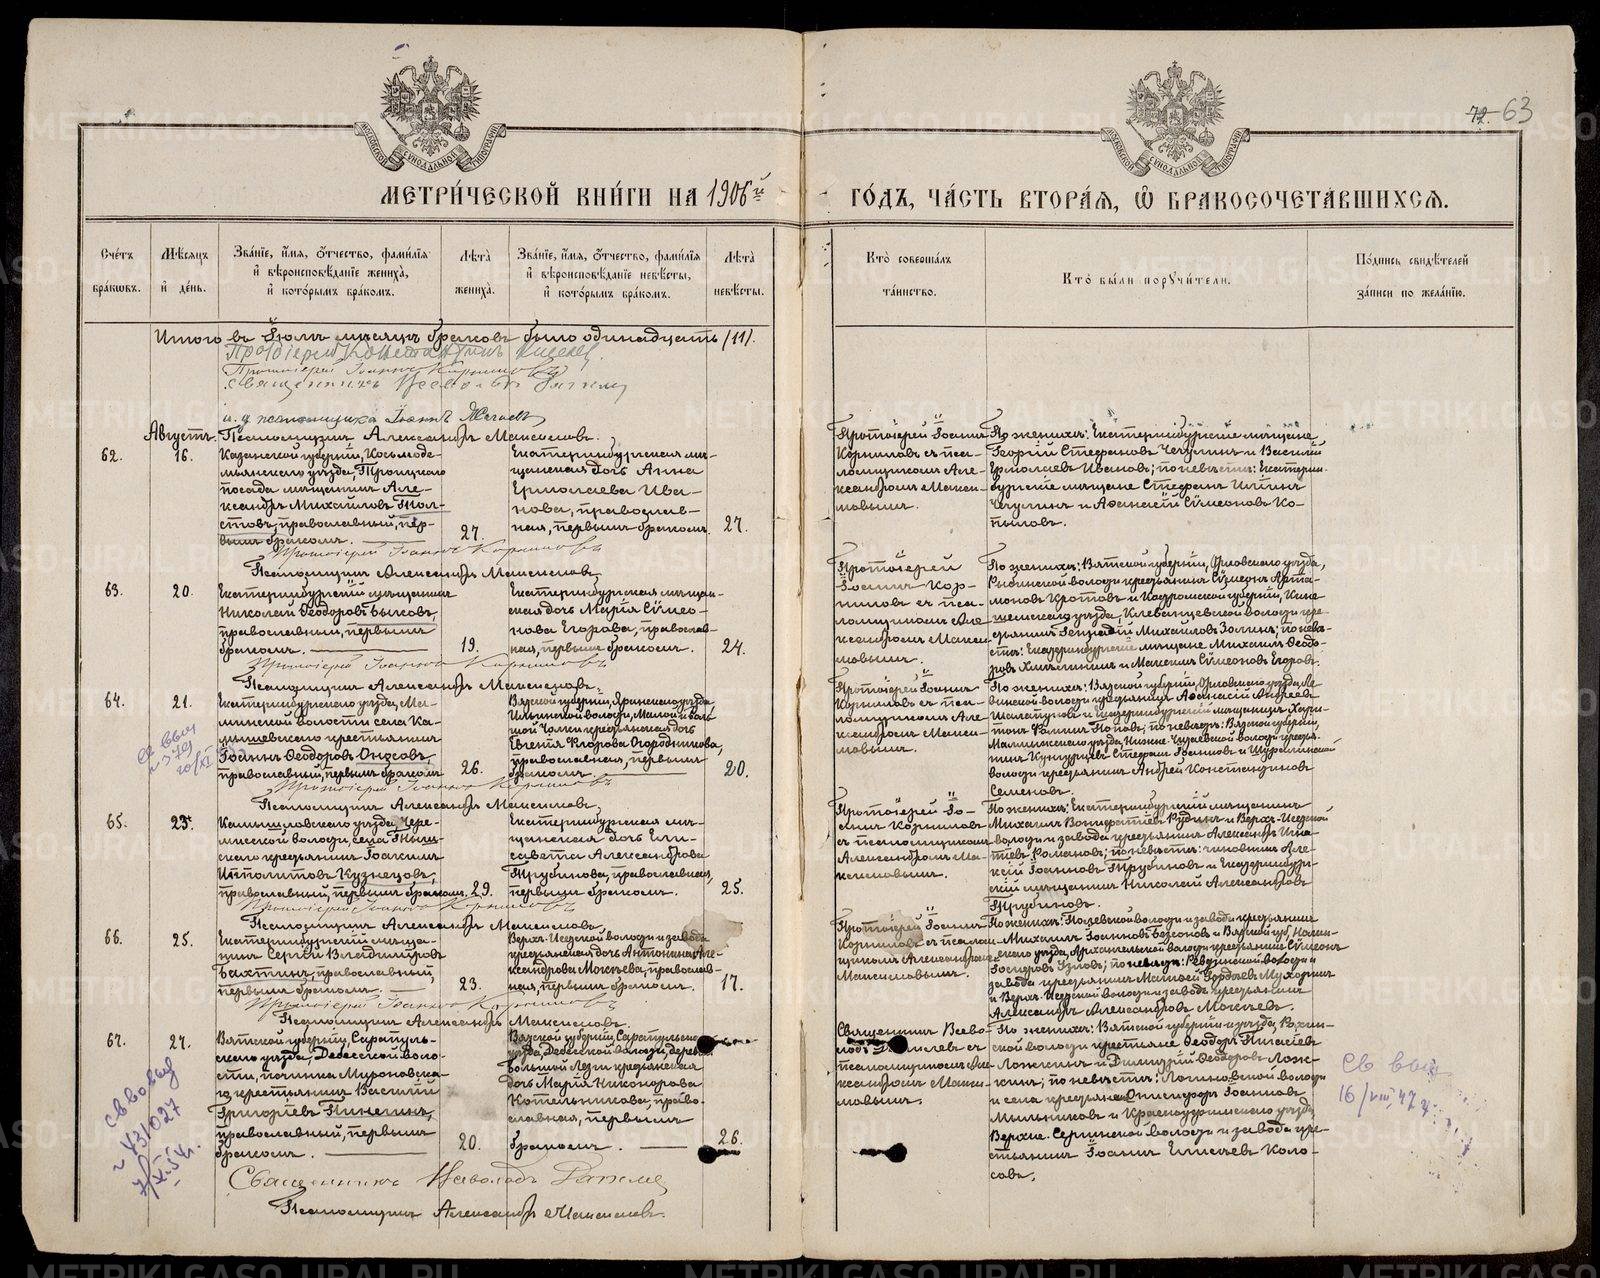 72. 63
МЕТРИ́ЧЕСКОЙ КНИ́ГИ НА 1906й ГО́ДЪ, ЧА́СТЬ ВТОРА́Я, Ѽ БРАКОСОЧЕТА́ВШИХСЯ.
Сче́тъ бра́кѡвъ.
Мѣ́сяцъ и҆ де́нь.
Зва́нїе, и҆́мя, ѻ҆́тчество, фами́лїя
и҆ вѣроисповѣ́данїе жениха̀,
и҆ кото́рымъ бра́комъ.
Лѣта̀ жениха̀.
Зва́нїе, и҆́мя, ѻ҆́тчество, фами́лїя
и҆ вѣроисповѣ́данїе невѣ́сты,
и҆ кото́рымъ бра́комъ.
Лѣта̀ невѣ́сты.
Кто̀ соверша́лъ
та́инство.
Кто̀ бы́ли порꙋчи́тели.
По́дпись свидѣ́телей
за́писи по жела́нїю.
Итого въ Іюлѣ мѣсяцѣ браковъ было одинадцать (11).
Протоіерей Іоаннъ Корниловъ
Псаломщикъ Александръ Максимовъ.
Августъ.
62.
16.
Казанской губерніи, Космоде-
мьянскаго уѣзда, Троицкаго
посада мѣщанинъ Але-
ксандръ Михайловъ Тол-
стовъ, православный, пер-
вымъ бракомъ.
27.
Екатеринбургская мѣ-
щанская дочь Анна
Ермолаева Ива-
нова, православ-
ная, первымъ бракомъ.
27.
Протоіерей Іоаннъ
Корниловъ съ пса-
ломщикомъ Але-
ксандромъ Макси-
мовымъ.
По женихѣ: Екатеринбургскіе мѣщане
Георгій Стефановъ Чечулинъ и Василій
Ермолаевъ Ивановъ; по невѣстѣ: Екатерин-
бургскіе мѣщане Стефанъ
Чечулинъ и Аѳанасій Сѵмеоновъ Ко-
пыловъ.
Протоіерей Іоаннъ Корниловъ
Псаломщикъ Александръ Максимовъ.
63.
20.
Екатеринбургскій мѣщанинъ
Николай Ѳеодоровъ Быковъ,
православный, первымъ
бракомъ.
19.
Екатеринбургская мѣщан-
ская дочь Марія Сѵмео-
нова Егорова, православ-
ная, первымъ бракомъ.
24.
Протоіерей
Іоаннъ Кор-
ниловъ съ пса-
ломщикомъ Але-
ксандромъ Макси-
мовымъ.
По женихѣ: Вятской губерніи, Орловскаго уѣзда,
волости крестьянинъ Сѵмеонъ Арта-
моновъ Кротовъ и Костромской губерніи, Кине-
шемскаго уѣзда, Клеванцевской волости кре-
стьянинъ Геннадій Михайловъ Золинъ; по невѣ-
стѣ: Екатеринбургскіе мѣщане Михаилъ Ѳеодо-
ровъ и Максимъ Сѵмеоновъ Егоровъ.
Протоіерей Іоаннъ Корниловъ
Псаломщикъ Александръ Максимовъ.
64.
21.
Екатеринбургскаго уѣзда, Ма-
минской волости села Ка-
мышевскаго крестьянинъ
Іоаннъ Ѳеодоровъ
православный, первымъ бракомъ
26.
Вятской губерніи, Яранскаго уѣзда,
волости,
крестьянская дочь
Евгенія Огородникова,
православная, первымъ
бракомъ
20.
Протоіерей Іоаннъ
Корниловъ съ пса-
ломщикомъ Але-
ксандромъ Макси-
мовымъ.
По женихѣ: Вятской губерніи, Орловскаго уѣзда,
волости крестьянинъ Аѳанасій Андреевъ
и Екатеринбургскій мѣщанинъ Хари-
тонъ Поповъ; по невѣстѣ: Вятской губерніи,
Малмыжскаго уѣзда, волости кресть-
янинъ Стефанъ Іоанновъ и
волости крестьянинъ Андрей Константиновъ
Семеновъ.
Протоіерей Іоаннъ Корниловъ
Псаломщикъ Александръ Максимовъ.
65.
23.
Камышловскаго уѣзда,
волости, села
крестьянинъ Іоакимъ
Ипполитовъ Кузнецовъ,
православный, первымъ бракомъ.
29.
Екатеринбургская мѣ-
щанская дочь Ели-
савета Александрова
Трубинова, православная,
первымъ бракомъ.
25.
Протоіерей Іо-
аннъ Корниловъ
съ псаломщикомъ
Александромъ Ма-
ксимовымъ.
По женихѣ: Екатеринбургскій мѣщанинъ
Михаилъ Вонифатіевъ Рудинъ и Верхъ-Исетской
волости и завода крестьянинъ Александръ Игна-
тіевъ Романовъ; по невѣстѣ: чиновникъ Але-
ксій Іоанновъ Трубиновъ и Екатеринбург-
скій мѣщанинъ Николай Александровъ
Трубиновъ.
Протоіерей Іоаннъ Корниловъ
Псаломщикъ Александръ Максимовъ.
66.
25.
Екатеринбургскій мѣща-
нинъ Сергій Владиміровъ
Бахтинъ, православный,
первымъ бракомъ.
23.
Верхъ-Исетской волости и завода
крестьянская дочь Антонина Але-
ксандрова Мокѣева, православ-
ная, первымъ бракомъ.
17.
Протоіерей Іоаннъ
Корниловъ съ псалом-
щикомъ Александромъ
Максимовымъ.
По женихѣ: Полевской волости и завода крестьянинъ
Михаилъ Іоанновъ Безсоновъ и Вятской губ. Нолин-
скаго уѣзда, Архангельской волости крестьянинъ Сѵмеонъ
по невѣстѣ: Ревдинской волости и
завода крестьянинъ Матвей Гордѣевъ Мухоринъ
и Верхъ-Исетской волости и завода крестьянинъ
Александръ Александровъ Мокѣевъ.
Протоіерей Іоаннъ Корниловъ
Псаломщикъ Александръ Максимовъ.
67.
27.
Вятской губерніи, Сарапуль-
скаго уѣзда, Дебесской воло-
сти, починка Мироновска-
го крестьянинъ Василій
Григорьевъ Пинегинъ,
православный, первымъ
бракомъ.
20.
Вятской губерніи, Сарапульскаго
уѣзда, Дебесской волости, деревни
Большой крестьянская
дочь Марія Никонорова
Котельникова, право-
славная, первымъ
бракомъ.
26.
Священникъ Всево-
лодъ съ
псаломщикомъ Але-
ксандромъ Макси-
мовымъ.
По женихѣ: Вятской губерніи и уѣзда,
волости крестьяне Ѳеодоръ
Ложкинъ и Димитрій Ѳеодоровъ Лож-
кинъ; по невѣстѣ: Логиновской волости
и села крестьянинъ Онисифоръ Іоанновъ
Мыльниковъ и Красноуфимскаго уѣзда,
Верхне-Сергинской волости и завода кре-
стьянинъ Іоаннъ Елисѣевъ Коло-
совъ.
Священникъ Всеволодъ
Псаломщикъ Александръ Максимовъ.
Св выд
16/VIII 47 г.